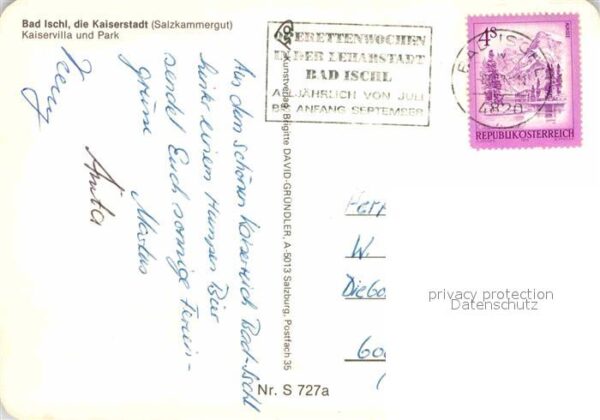 Bad Ischl, die Kaiserstadt (Salzkammergut)
Kaiservilla und Park
OPERETTENWOCHEN
IN DER LEHARSTADT
BAD ISCHL
ALLJÄHRLICH VON JULI
BIS ANFANG SEPTEMBER
BAD ISCHL
4820
4S
REPUBLIK ÖSTERREICH
Kunstverlag Brigitte DAVID-GRÜNDLER, A-5013 Salzburg, Postfach 35
Aus dem schönen Kaiserreich Bad-Ischl
hinter einem Humpen Bier
sendet Euch sonnige Ferien-
grüsse Markus
Anita
W.
privacy protection
Datenschutz
Nr. S 727a